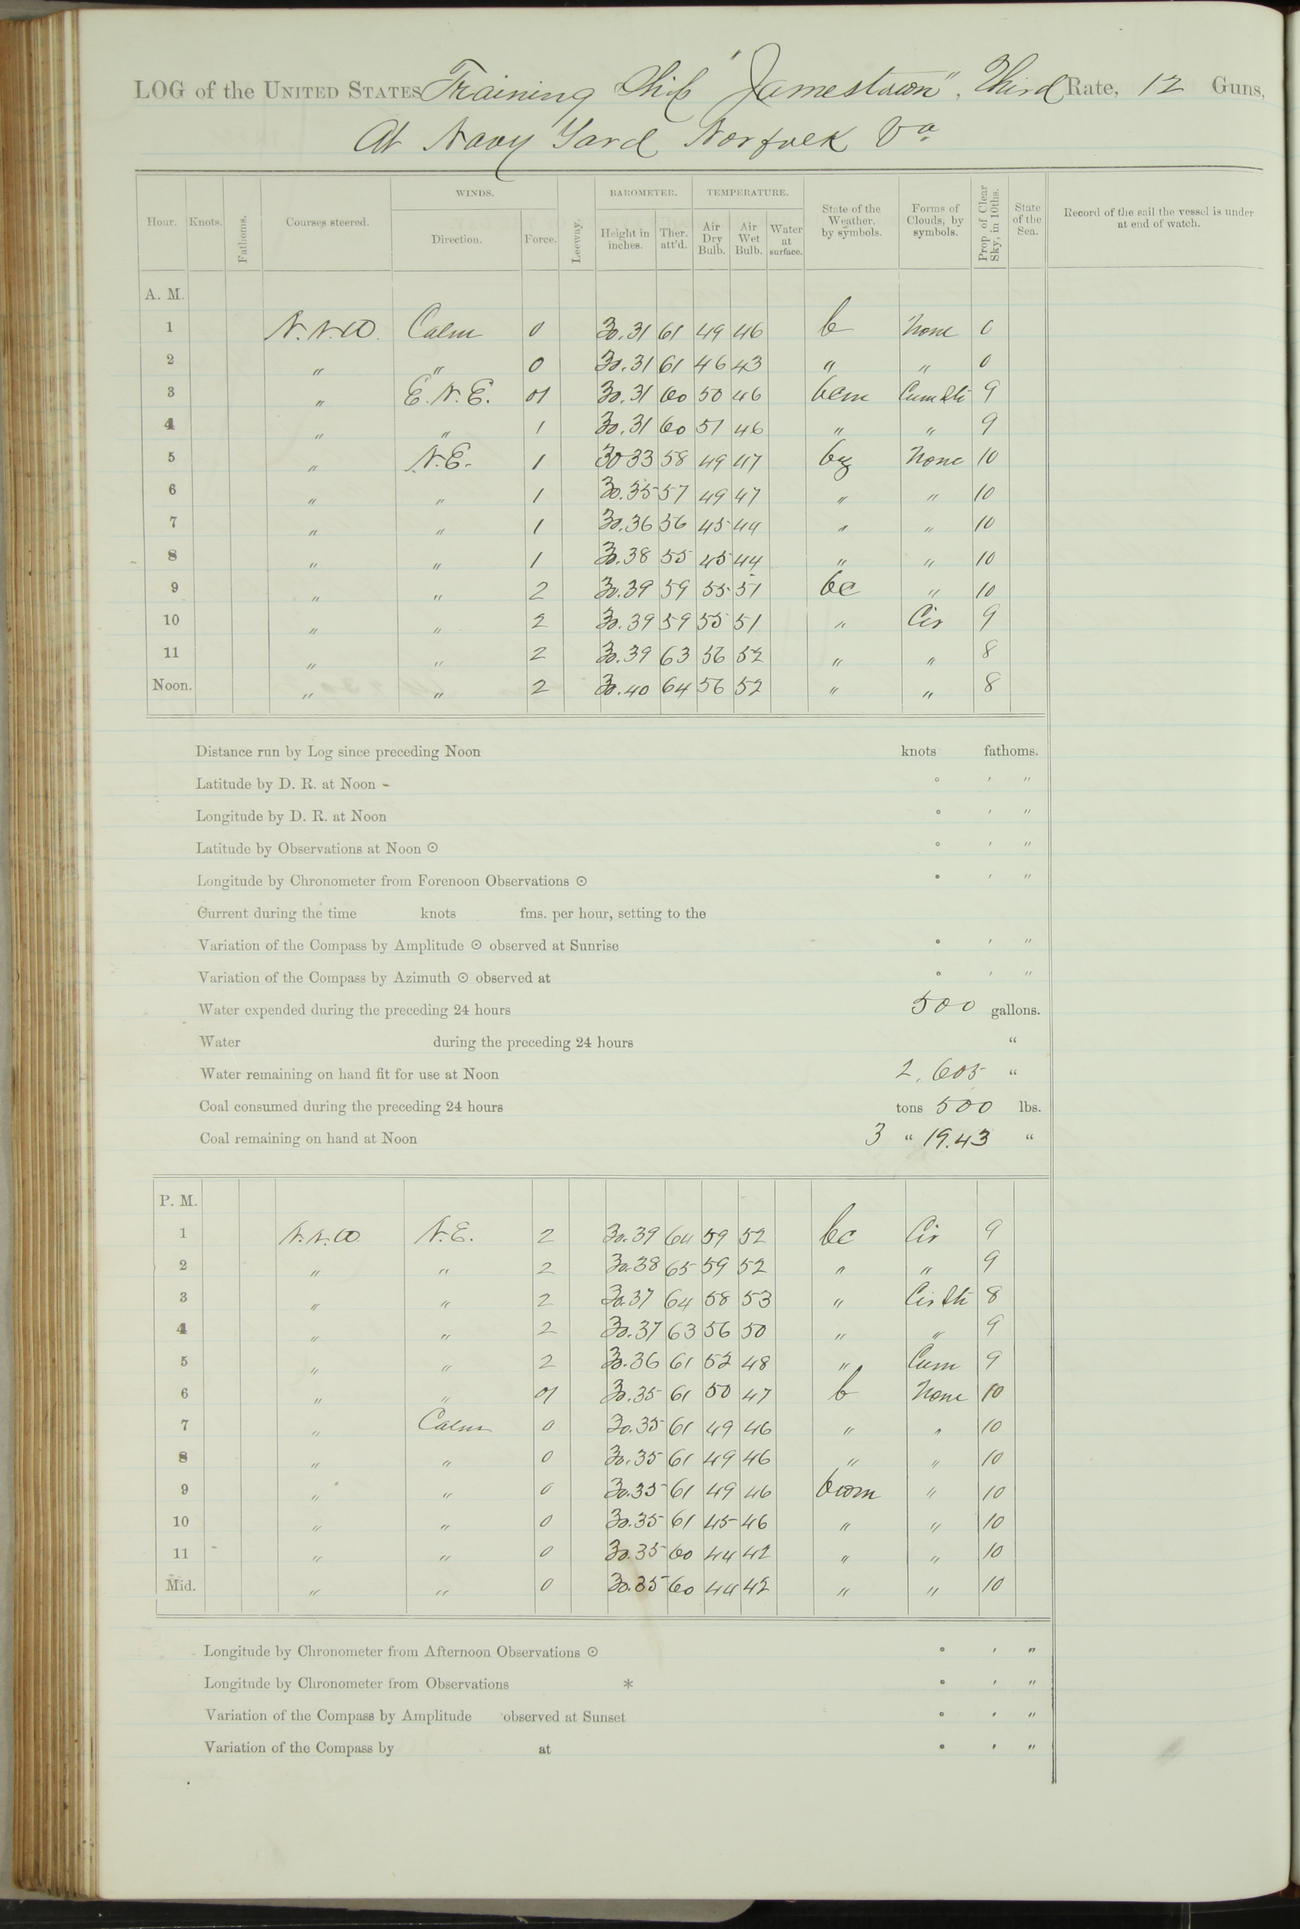 LOG of the UNITED STATES Training Ship "Jamestown", Third Rate, 12 Guns,
At Navy Yard Norfolk Va
Hour. Knots. Fathoms. Courses steered. WINDS. Direction. Force. Leeway. BAROMETER. Height in inches. Ther. att'd. TEMPERATURE. Air Dry Bulb. Air Wet Bulb. Water at surface. State of the Weather, by symbols. Forms of Clouds, by symbols. Prop. of Clear Sky, in 10ths. State of the Sea. Record of the sail the vessel is under at end of watch.
A. M.
1 N.N.W. Calm 0 30.31 61 49 46 b None 0
2 " " 0 30.31 61 46 43 " " 0
3 " E.N.E. 01 30.31 60 50 46 bcm Cum Sti 9
4 " " 1 30.31 60 51 46 " " 9
5 " N.E. 1 30 33 58 49 47 None 10
6 " " 1 30.35 57 49 47 " " 10
7 " " 1 30.36 56 45 44 " " 10
8 " " 1 30.38 55 45 44 " " 10
9 " " 2 30.39 59 55 51 bc " 10
10 " " 2 30.39 59 55 51 " Cir 9
11 " " 2 30.39 63 56 52 " " 8
Noon. " " 2 30.40 64 56 52 " " 8
Distance run by Log since preceding Noon knots fathoms.
Latitude by D. R. at Noon - ° ′ ″
Longitude by D. R. at Noon ° ′ ″
Latitude by Observations at Noon ⊙ ° ′ ″
Longitude by Chronometer from Forenoon Observations ⊙ ° ′ ″
Current during the time knots fms. per hour, setting to the
Variation of the Compass by Amplitude ⊙ observed at Sunrise ° ′ ″
Variation of the Compass by Azimuth ⊙ observed at ° ′ ″
Water expended during the preceding 24 hours 500 gallons.
Water during the preceding 24 hours "
Water remaining on hand fit for use at Noon 2,605 "
Coal consumed during the preceding 24 hours tons 500 lbs.
Coal remaining on hand at Noon 3 " 19.43 "
P. M.
1 N.N.W. N.E. 2 30.39 64 59 52 bc Cir 9
2 " " 2 30.38 65 59 52 " " 9
3 " " 2 30.37 64 58 53 " Cir Sti 8
4 " " 2 30.37 63 56 50 " " 9
5 " " 2 30.36 61 52 48 " Cum 9
6 " " 01 30.35 61 50 47 b None 10
7 " Calm 0 30.35 61 49 46 " " 10
8 " " 0 30.35 61 49 46 " " 10
9 " " 0 30.35 61 49 46 " 10
10 " " 0 30.35 61 45 46 " " 10
11 " " 0 30.35 60 44 42 " " 10
Mid. " " 0 30.35 60 44 42 " " 10
Longitude by Chronometer from Afternoon Observations ⊙ ° ′ ″
Longitude by Chronometer from Observations * ° ′ ″
Variation of the Compass by Amplitude observed at Sunset ° ′ ″
Variation of the Compass by at ° ′ ″